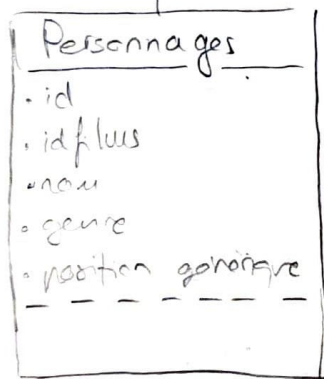 Personnages
. id
. id films
. nom
. genre
. position générique